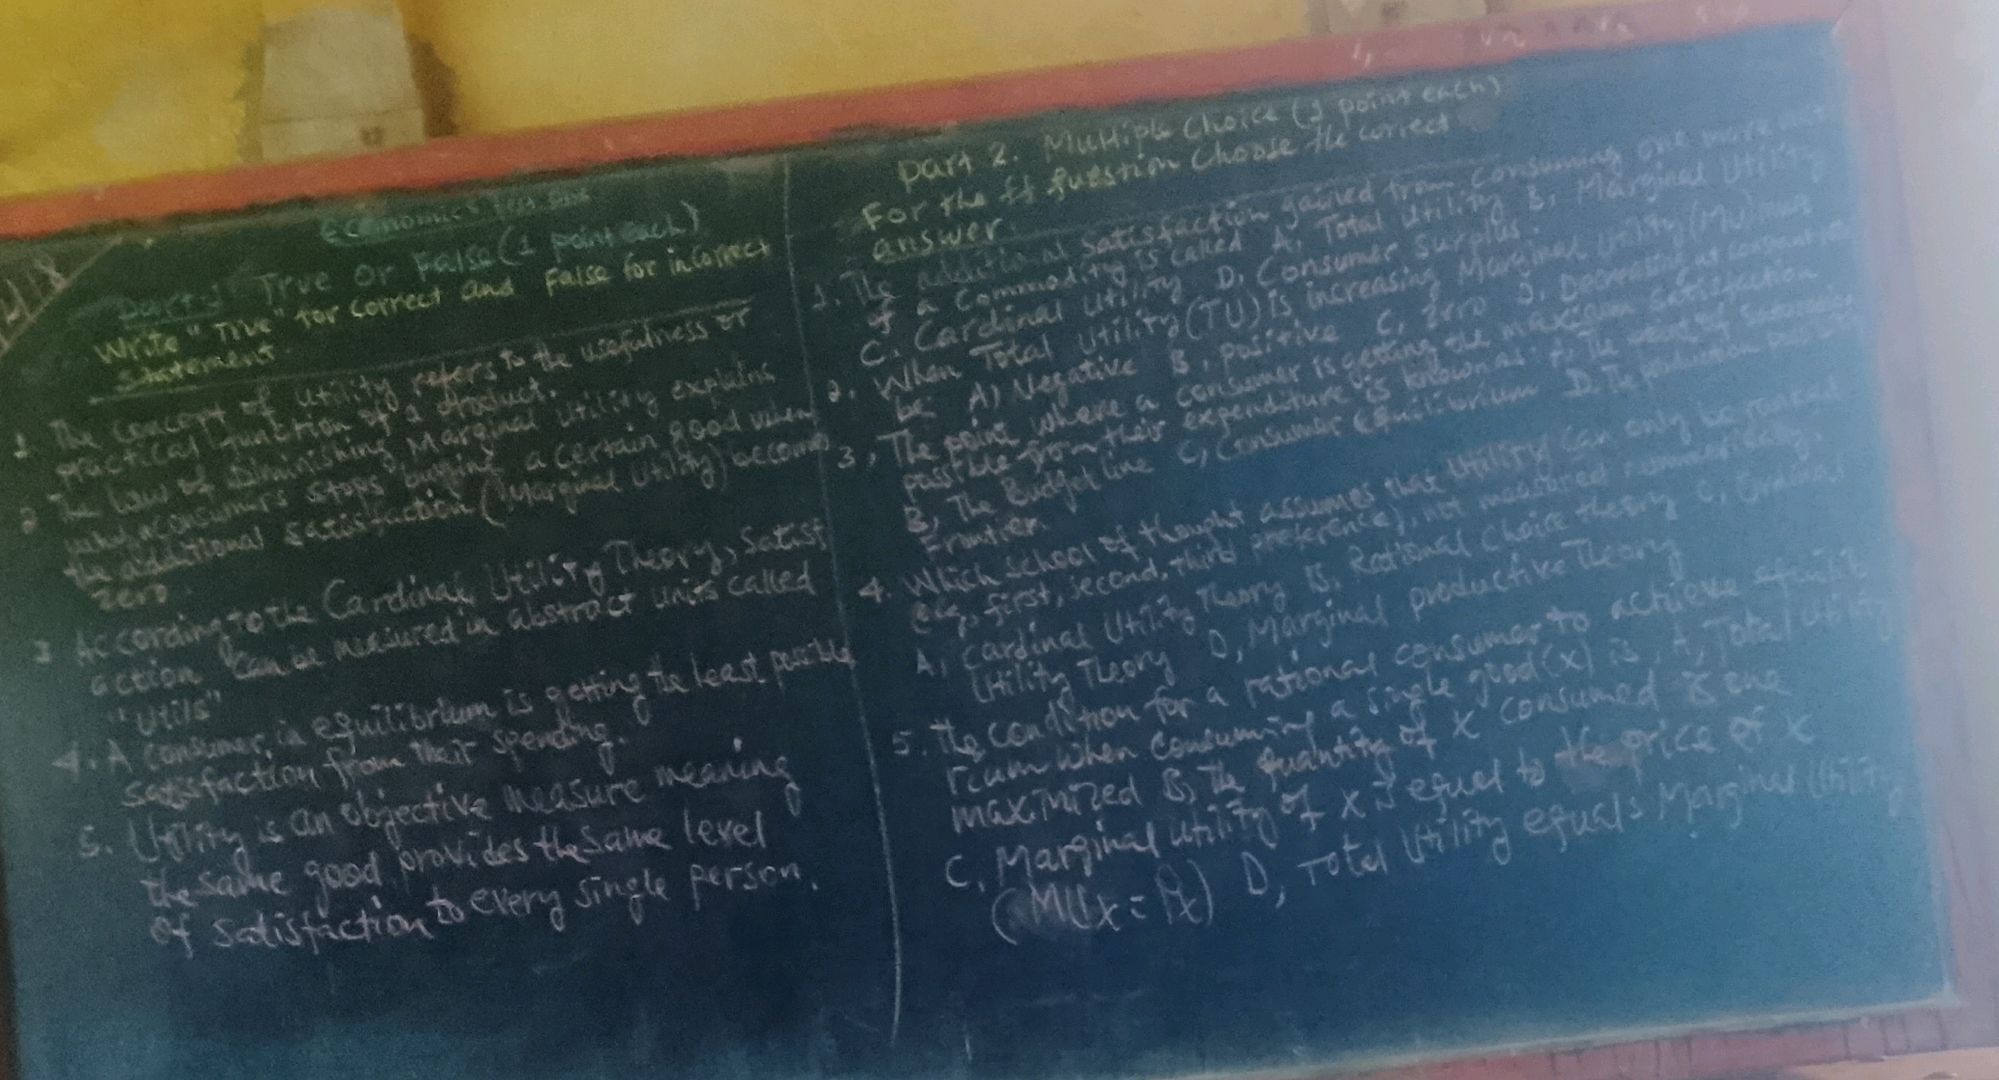 Economics
Part 1 True or False (1 point each)
Write "True" for correct and False for incorrect
statement.
1 The concept of Utility refers to the usefulness or
practical function of a product.
2 The Law of Diminishing Marginal Utility explains
why consumers stops buying a certain good when
the additional satisfaction (Marginal Utility) becomes
zero.
3 According to the Cardinal Utility Theory, satisf
action can be measured in abstract units called
"Utils"
4. A consumer in equilibrium is getting the least possible
satisfaction from their spending.
5. Utility is an objective measure meaning
the same good provides the same level
of satisfaction to every single person.
part 2. Multiple Choice (1 point each)
For the ff question choose the correct
answer.
1. The additional satisfaction gained from consuming one more unit
of a Commodity is called A, Total Utility B, Marginal Utility
C. Cardinal Utility D, Consumer Surplus.
2. When Total Utility (TU) is increasing Marginal Utility (MU) must
be A) Negative B, positive C, Zero D, Decreasing at constant rate
3, The point where a consumer is getting the maximum satisfaction
possible from their expenditure is known as A, The point of
B, The Budget line C, Consumer Equilibrium D. The production possibility
Frontier
4. Which school of thought assumes that Utility can only be ranked
(eg, first, second, third preference), not measured numerically.
A, Cardinal Utility Theory B, Rational Choice theory C, Ordinal
Utility Theory D, Marginal productive Theory
5. The condition for a rational consumer to achieve equilib
rium when consuming a single good (x) is, A, Total Utility
maximized B, The quantity of X consumed is one
C, Marginal utility of X is equal to the price of X
(MUx = Px) D, Total Utility equals Marginal Utility